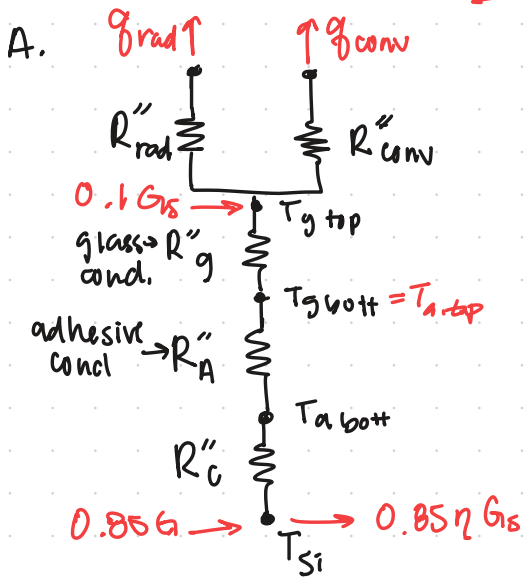 A.
q rad ↑
↑ q conv
R″rad
R″conv
0.1 Gs →
Tg top
glass → R″g
cond.
Tg bott = Ta,top
adhesive
cond → R″A
Ta bott
R″c
0.85G →
→ 0.85η Gs
TSi